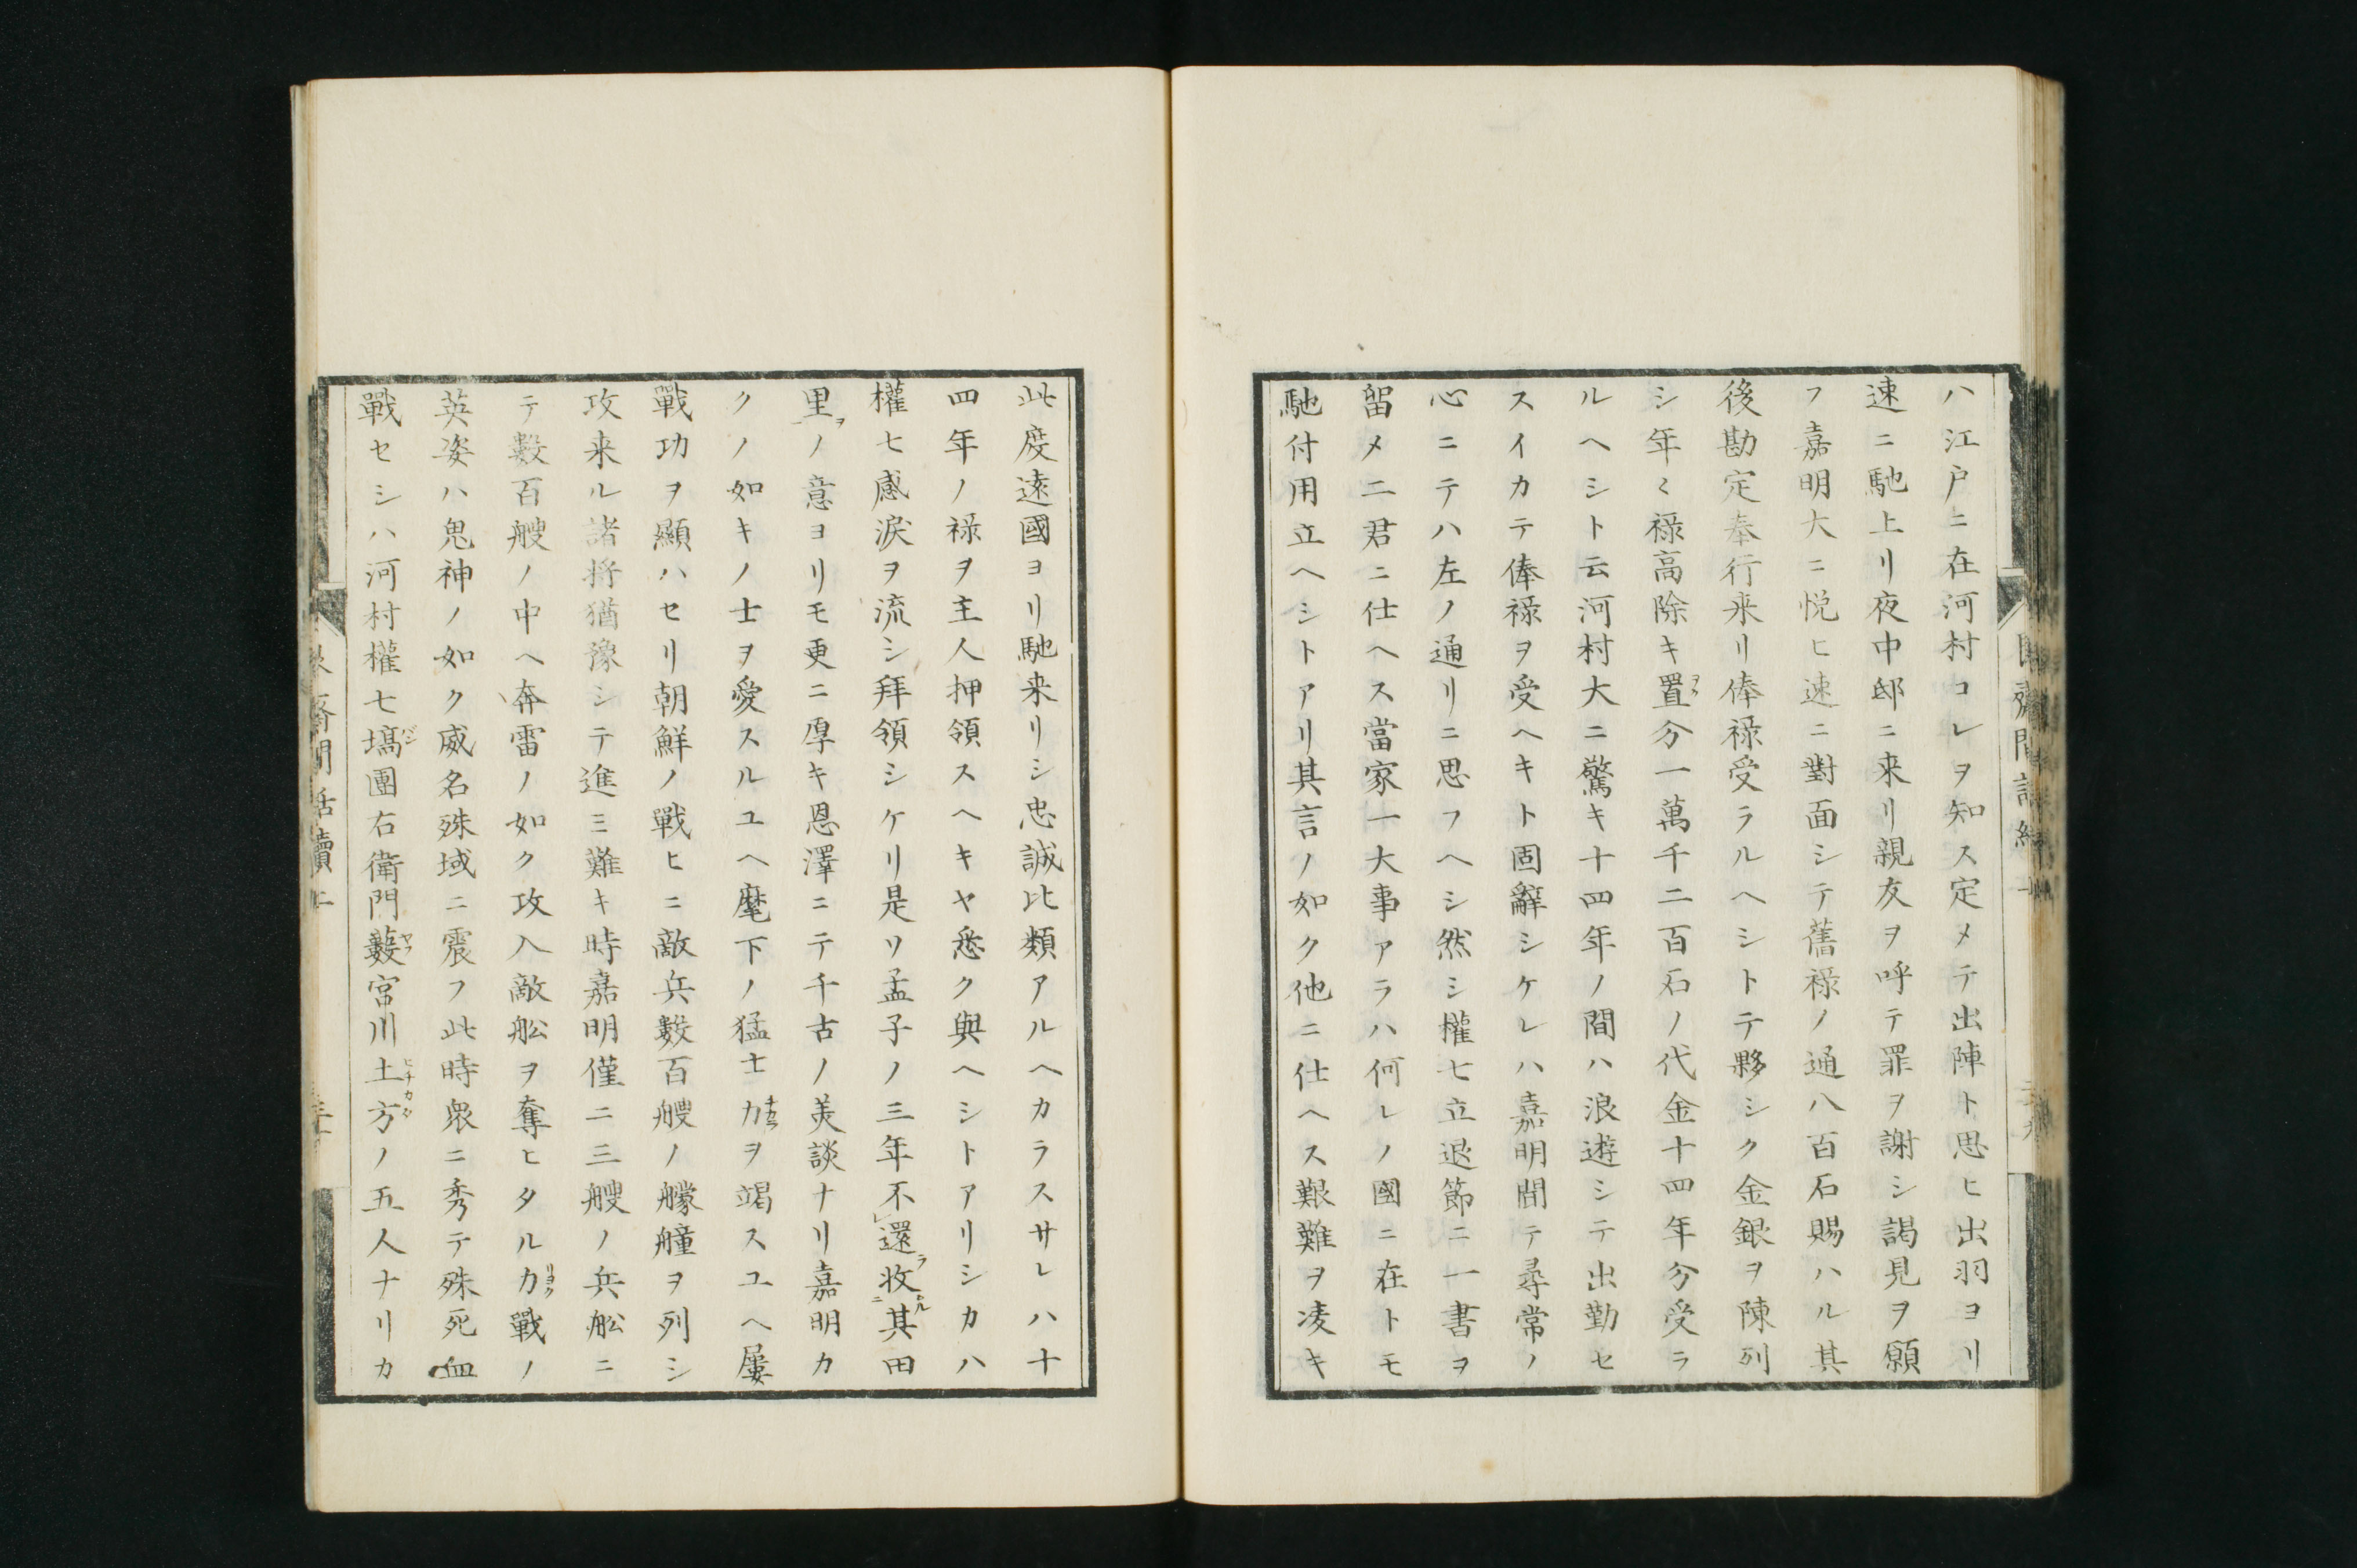 ハ江戸ニ在河村コレヲ知ス定メテ出陣ト思ヒ出羽ヨリ
速ニ馳上リ夜中邸ニ来リ親友ヲ呼テ罪ヲ謝シ謁見ヲ願
フ嘉明大ニ悦ヒ速ニ對面シテ舊禄ノ通八百石賜ハル其
後勘定奉行来リ俸禄受ラルヘシトテ夥シク金銀ヲ陳列
シ年〻禄高除キ置分一萬千二百石ノ代金十四年分受ラ
ルヘシト云河村大ニ驚キ十四年ノ間ハ浪遊シテ出勤セ
スイカテ俸禄ヲ受ヘキト固辭シケレハ嘉明聞テ尋常ノ
心ニテハ左ノ通リニ思フヘシ然シ權七立退節ニ一書ヲ
留メ二君ニ仕ヘス當家一大事アラハ何レノ國ニ在トモ
馳付用立ヘシトアリ其言ノ如ク他ニ仕ヘス艱難ヲ凌キ
此度遠國ヨリ馳来リシ忠誠比類アルヘカラスサレハ十
四年ノ禄ヲ主人押領スヘキヤ悉ク與ヘシトアリシカハ
權七感涙ヲ流シ拜領シケリ是ソ孟子ノ三年不還收其田
里ノ意ヨリモ更ニ厚キ恩澤ニテ千古ノ美談ナリ嘉明カ
クノ如キノ士ヲ愛スルユヘ麾下ノ猛士力ヲ竭スユヘ屢
戰功ヲ顯ハセリ朝鮮ノ戰ヒニ敵兵數百艘ノ艨艟ヲ列シ
攻来ル諸将猶豫シテ進ミ難キ時嘉明僅ニ三艘ノ兵舩ニ
テ數百艘ノ中ヘ奔雷ノ如ク攻入敵舩ヲ奪ヒタル力戰ノ
英姿ハ鬼神ノ如ク威名殊域ニ震フ此時衆ニ秀テ殊死血
戰セシハ河村權七塙團右衛門藪宮川土方ノ五人ナリカ